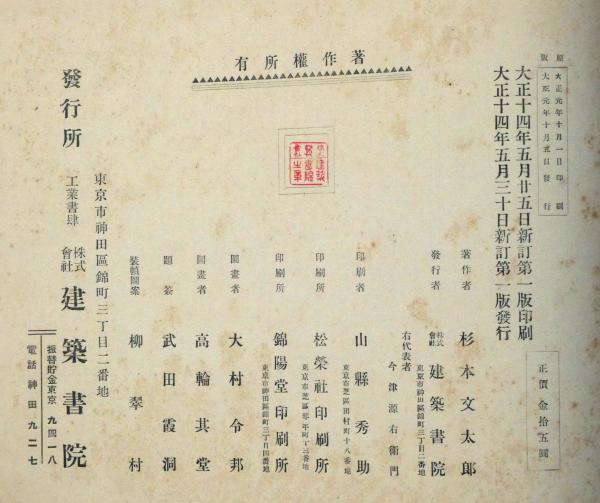 原版
大正元年十月一日印刷
大正元年十月五日發行
大正十四年五月廿五日新訂第一版印刷
大正十四年五月三十日新訂第一版發行
正價金拾五圓
著作權所有
著作者 杉本文太郎
發行者 株式會社 建築書院
東京市神田區錦町三丁目二番地
右代表者 今津源右衞門
印刷者 山縣秀助
東京市芝區田村町十八番地
印刷所 松榮社印刷所
印刷所 錦陽堂印刷所
東京市神田區錦町三丁目四番地
圖畫者 大村令邦
圖畫者 高輪其堂
題簽 武田霞洞
裝幀圖案 柳翠村
東京市神田區錦町三丁目二番地
發行所 工業書肆 株式會社 建築書院
振替貯金東京 九四一八
電話神田 九二七